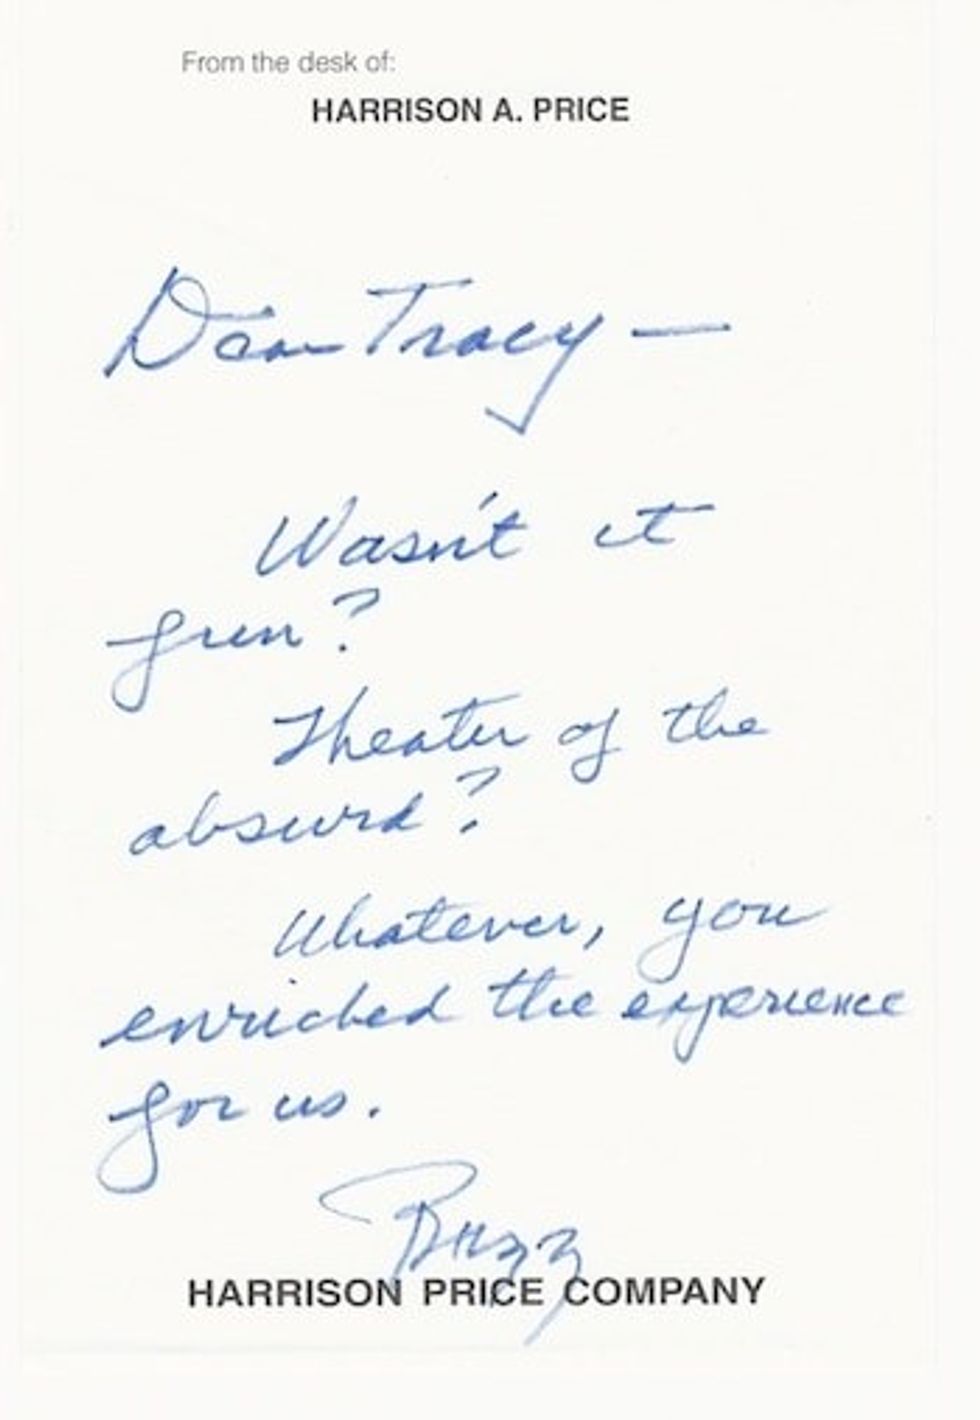 From the desk of:
HARRISON A. PRICE
Dear Tracy —
Wasn't it
fun?
Theater of the
absurd?
Whatever, you
enriched the experience
for us.
Buzz
HARRISON PRICE COMPANY